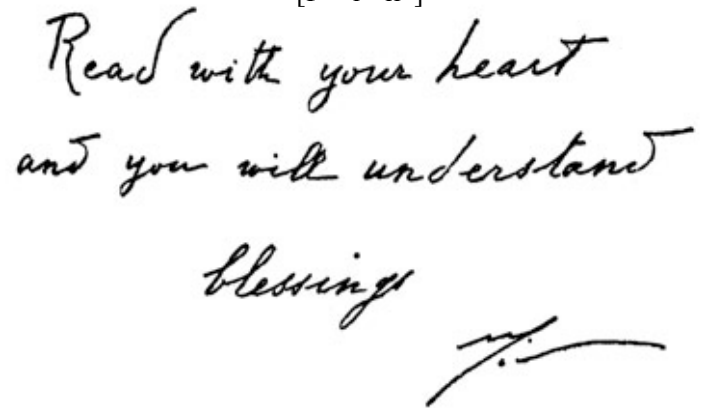 Read with your heart
and you will understand
blessings